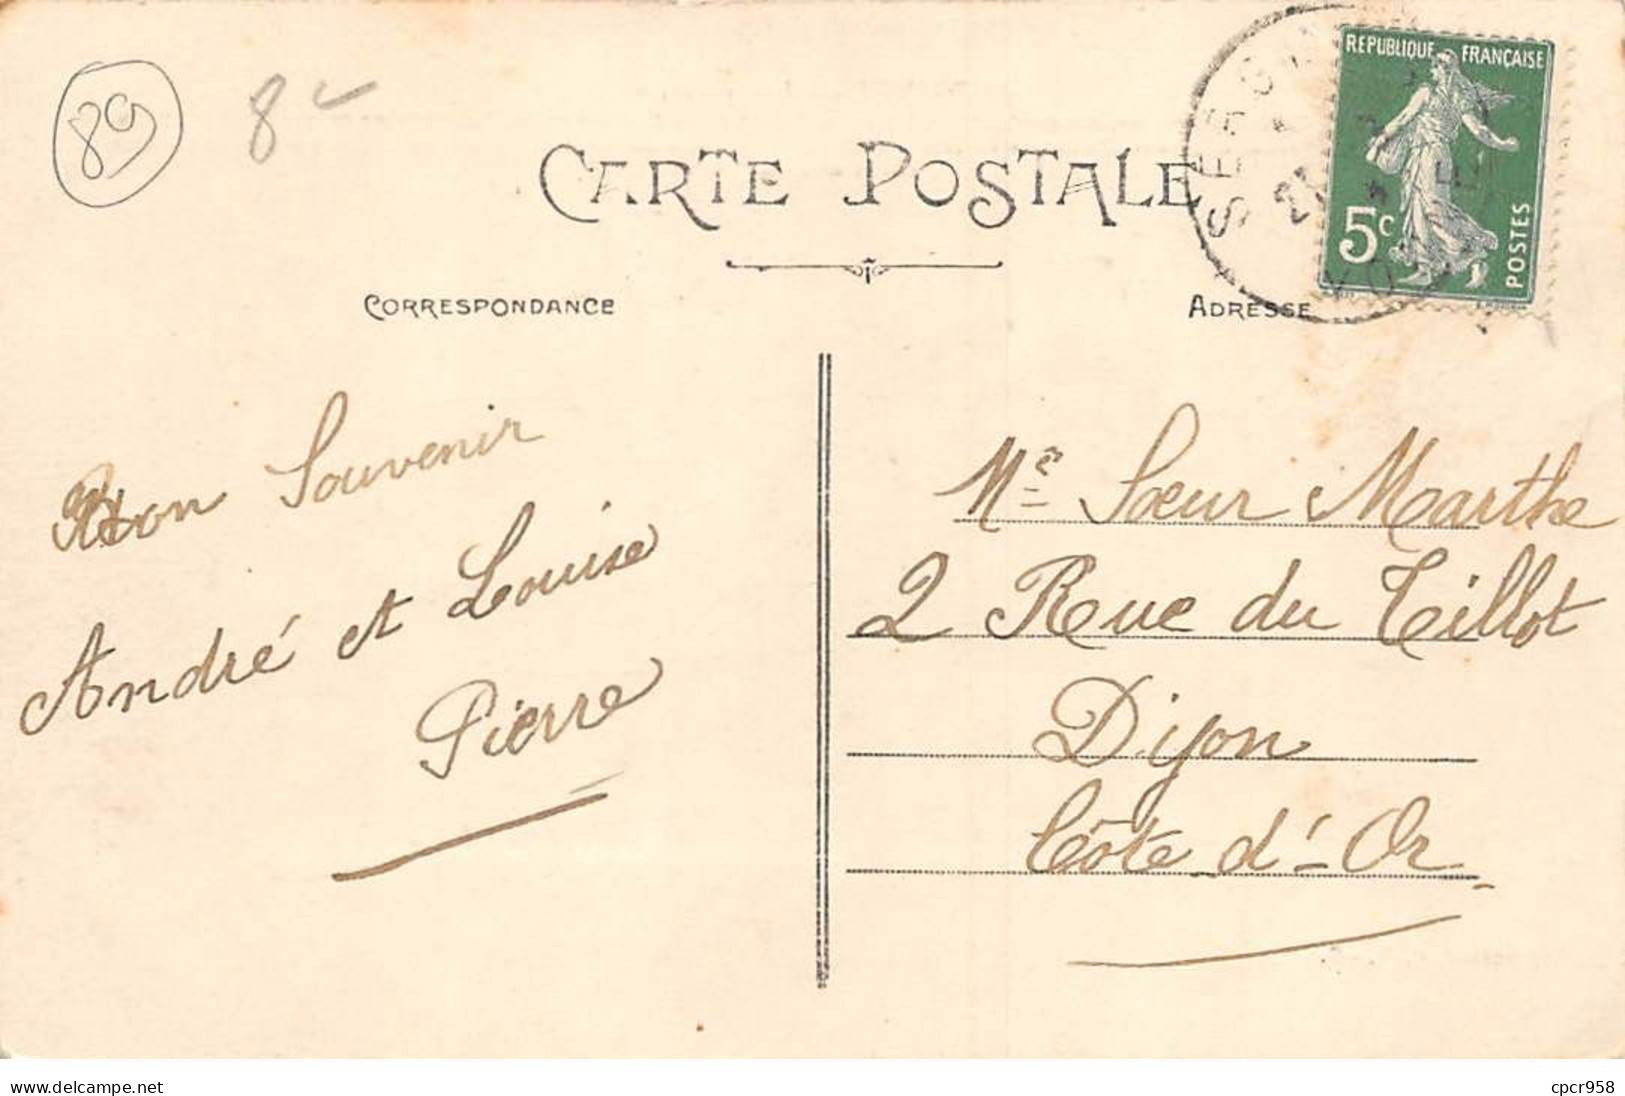 89
8
CARTE POSTALE
CORRESPONDANCE
ADRESSE
REPUBLIQUE FRANÇAISE
5c
POSTES
SERGINES
YONNE
Bon Souvenir
André et Louise
Pierre
Me Sœur Marthe
2 Rue du Tillot
Dijon
Côte-d'-Or
www.delcampe.net
cpcr958